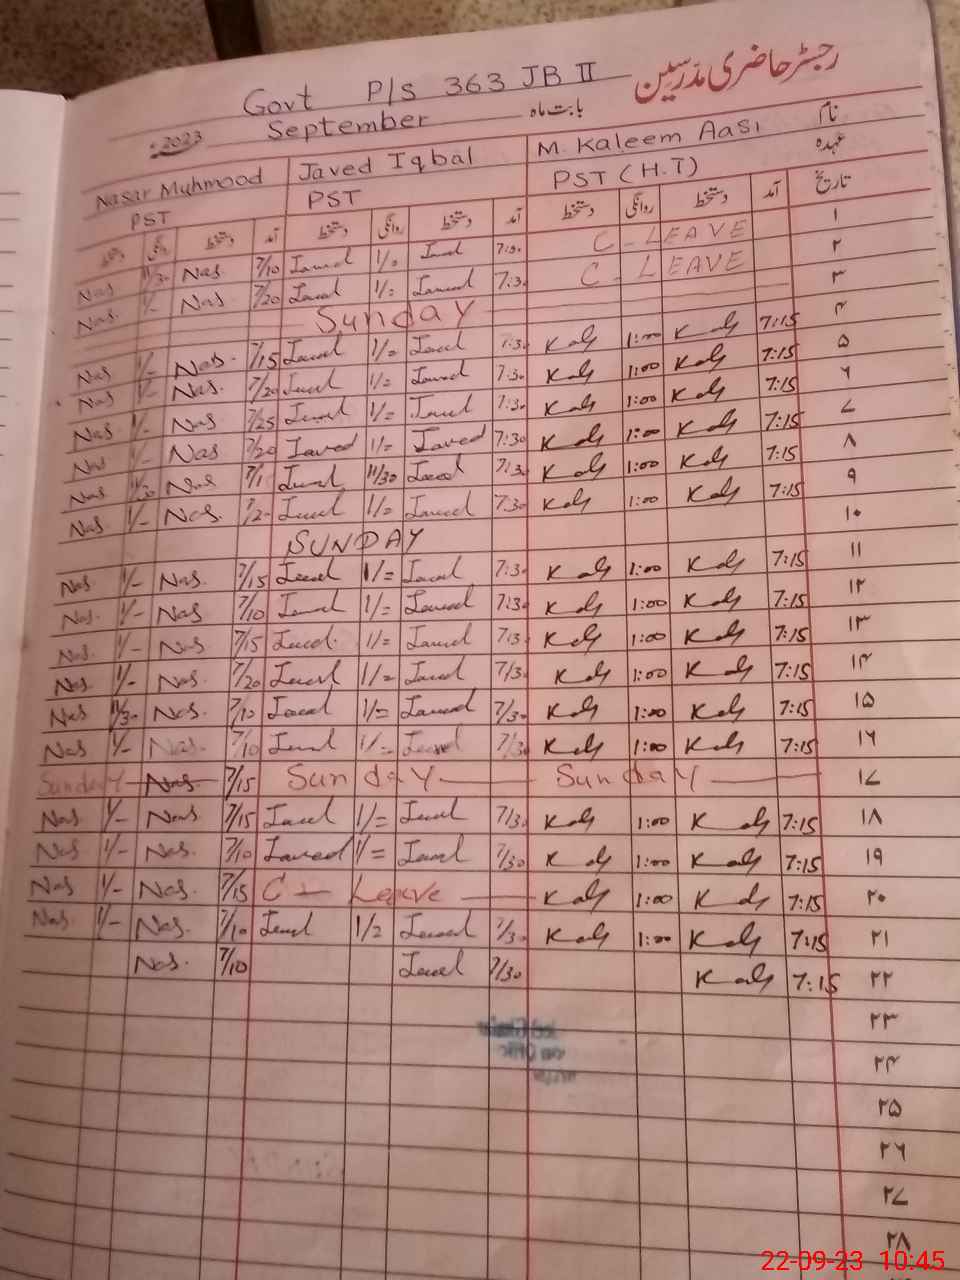 رجسٹر حاضری مدرسین
Govt P/s 363 JB II
2023 September بابت ماہ
Nasar Muhmood Javed Iqbal M. Kaleem Aasi نام
PST PST PST (H.T) عہدہ
دستخط روانگی دستخط آمد دستخط روانگی دستخط آمد دستخط روانگی دستخط آمد تاریخ
Nas 11/30 Nas 7/10 Javed 1/= Javed 7:30 C-LEAVE ۱
Nas. 1/- Nas 7/20 Javed 1/= Javed 7:30 C-LEAVE ۲
Sunday ۳
Nas 1/- Nas. 7/15 Javed 1/= Javed 7:30 1:00 7:15 ۴
Nas 1/- Nas. 7/20 Javed 1/= Javed 7:30 1:00 7:15 ۵
Nas 1/- Nas 7/25 Javed 1/= Javed 7:30 1:00 7:15 ۶
Nas 1/- Nas 7/20 Javed 1/= Javed 7:30 1:00 7:15 ۷
Nas 11/30 Nas Javed 11/30 Javed 7:30 1:00 7:15 ۸
Nas 1/- Nas. Javed 1/= Javed 7:30 1:00 7:15 ۹
SUNDAY ۱۰
Nas 1/- Nas. 7/15 Javed 1/= Javed 7:30 1:00 7:15 ۱۱
Nas. 1/- Nas 7/10 Javed 1/= Javed 7:30 1:00 7:15 ۱۲
Nas. 1/- Nas 7/15 Javed 1/= Javed 7:30 1:00 7:15 ۱۳
Nas. 1/- Nas. 7/20 Javed 1/= Javed 7/30 1:00 7:15 ۱۴
Nas 11/30 Nas. 7/10 Javed 1/= Javed 7/30 1:00 7:15 ۱۵
Nas 1/- Nas. 7/10 Javed 1/= Javed 7/30 1:00 7:15 ۱۶
Sunday Nas. 7/15 Sunday Sunday ۱۷
Nas 1/- Nas 7/15 Javed 1/= Javed 7/30 1:00 7:15 ۱۸
Nas 1/- Nas. 7/10 Javed 1/= Javed 7/30 1:00 7:15 ۱۹
Nas 1/- Nas. 7/15 C - Leave 1:00 7:15 ۲۰
Nas 1/- Nas. 7/10 Javed 1/= Javed 7/30 1:00 7:15 ۲۱
Nas. 7/10 Javed 7/30 7:15 ۲۲
۲۳
۲۴
۲۵
۲۶
۲۷
۲۸
22-09-23 10:45